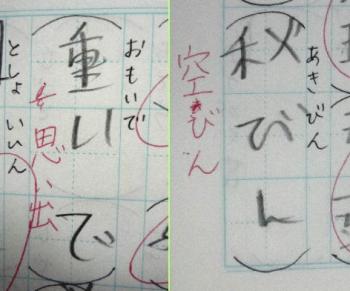 あきびん
秋びん
空びん
おもいで
重いで
思い出
としょ いいん